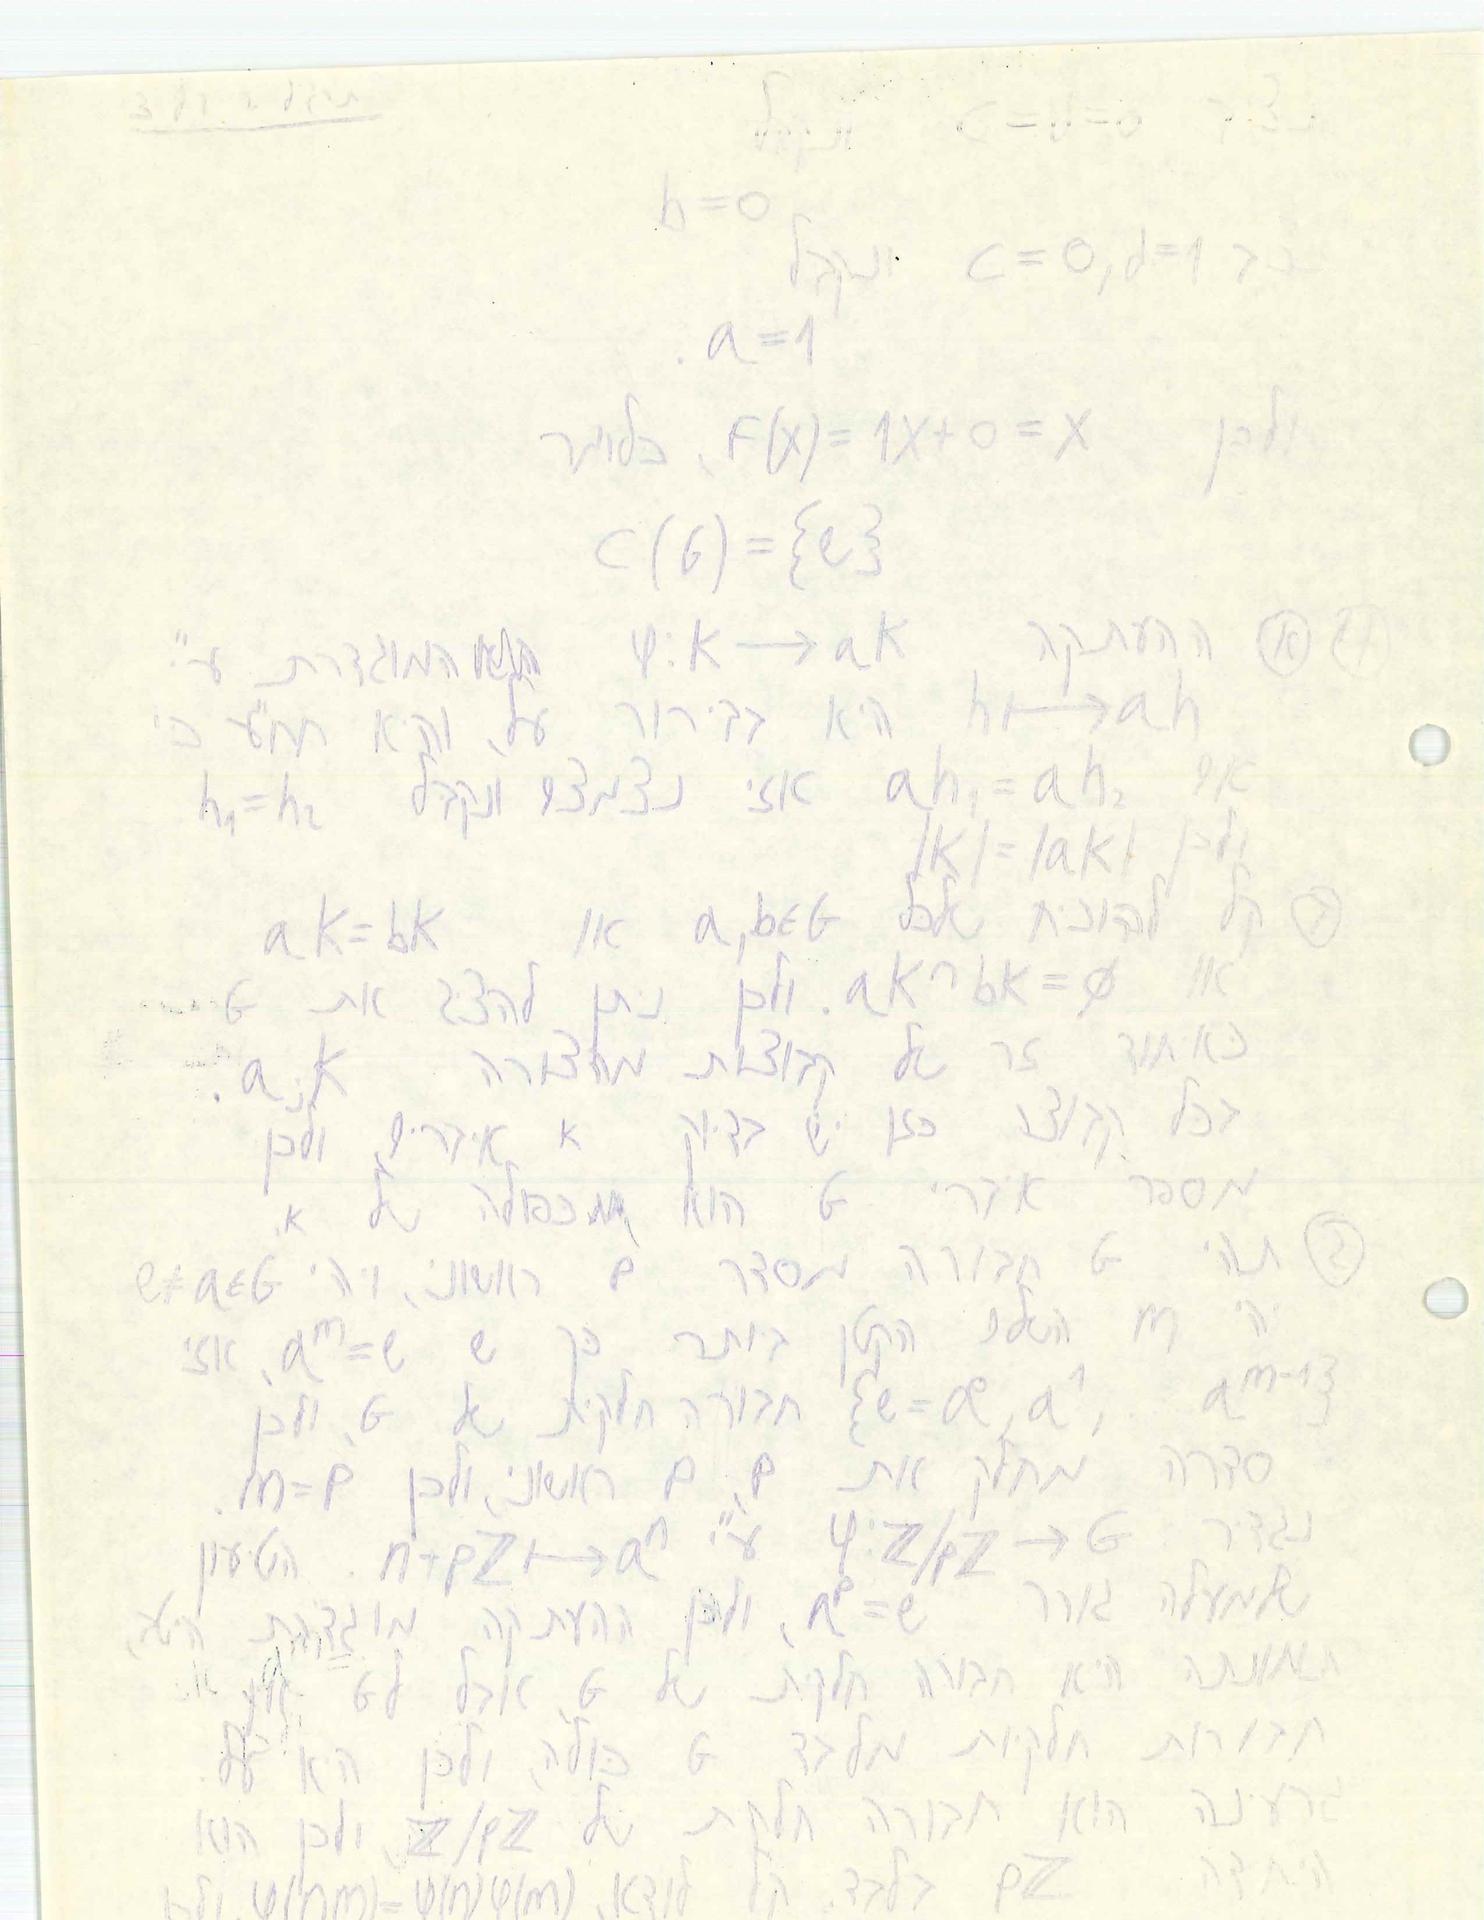 תרגיל 2 דף 3
נציב c=d=0 ונקבל
b=0
נציב c=0, d=1 ונקבל
a=1.
ולכן F(x)=1x+0=x, כלומר
C(G)={e}
א ההעתקה φ:K→aK המוגדרת ע"י
h↦ah היא בבירור על, והיא חח"ע כי
אם ah₁=ah₂ אזי נצמצם ונקבל h₁=h₂
ולכן |K|=|aK|
ב קל להוכיח שלכל a,b∈G או aK=bK
או aK∩bK=∅. ולכן ניתן להציג את G
כאיחוד זר של קבוצות מהצורה aᵢK.
בכל קבוצה כזו יש בדיוק K איברים, ולכן
מספר איברי G הוא מכפולה של K.
ג תהי G חבורה מסדר p ראשוני, ויהי e≠a∈G
יהי m השלם הקטן ביותר כך ש e=aᵐ, אזי
{e=a⁰,a¹,...aᵐ⁻¹} חבורה חלקית של G, ולכן
סדרה מחלק את p, p ראשוני, ולכן m=p.
נגדיר φ:ℤ/pℤ→G ע"י n+pℤ↦aⁿ. הטיעון
שלמעלה גורר e=aᵖ, ולכן ההעתקה מוגדרת היטב,
תמונתה היא חבורה חלקית של G, אבל לG אין
חבורות חלקיות מלבד G כולה, ולכן היא על.
גרעינה הוא חבורה חלקית של ℤ/pℤ, ולכן הוא
היחידה pℤ בלבד. קל לודא, φ(nm)=φ(n)φ(m), ולכן